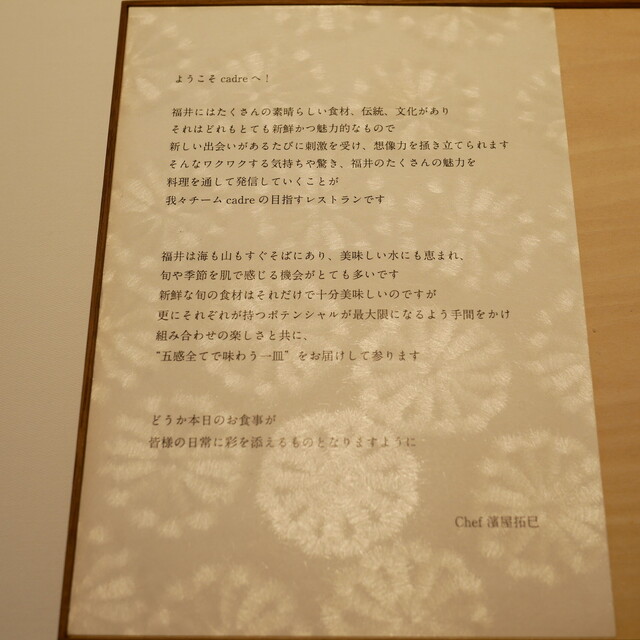 ようこそ cadre へ！
福井にはたくさんの素晴らしい食材、伝統、文化があり
それはどれもとても新鮮かつ魅力的なもので
新しい出会いがあるたびに刺激を受け、想像力を掻き立てられます
そんなワクワクする気持ちや驚き、福井のたくさんの魅力を
料理を通して発信していくことが
我々チーム cadre の目指すレストランです
福井は海も山もすぐそばにあり、美味しい水にも恵まれ、
旬や季節を肌で感じる機会がとても多いです
新鮮な旬の食材はそれだけで十分美味しいのですが
更にそれぞれが持つポテンシャルが最大限になるよう手間をかけ
組み合わせの楽しさと共に、
“五感全てで味わう一皿” をお届けして参ります
どうか本日のお食事が
皆様の日常に彩を添えるものとなりますように
Chef 濱屋拓巳